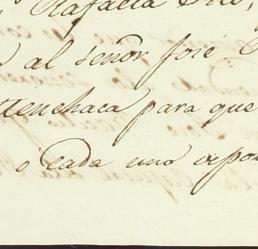 Rafaela
al señor José
Menchaca para que
ó cada uno